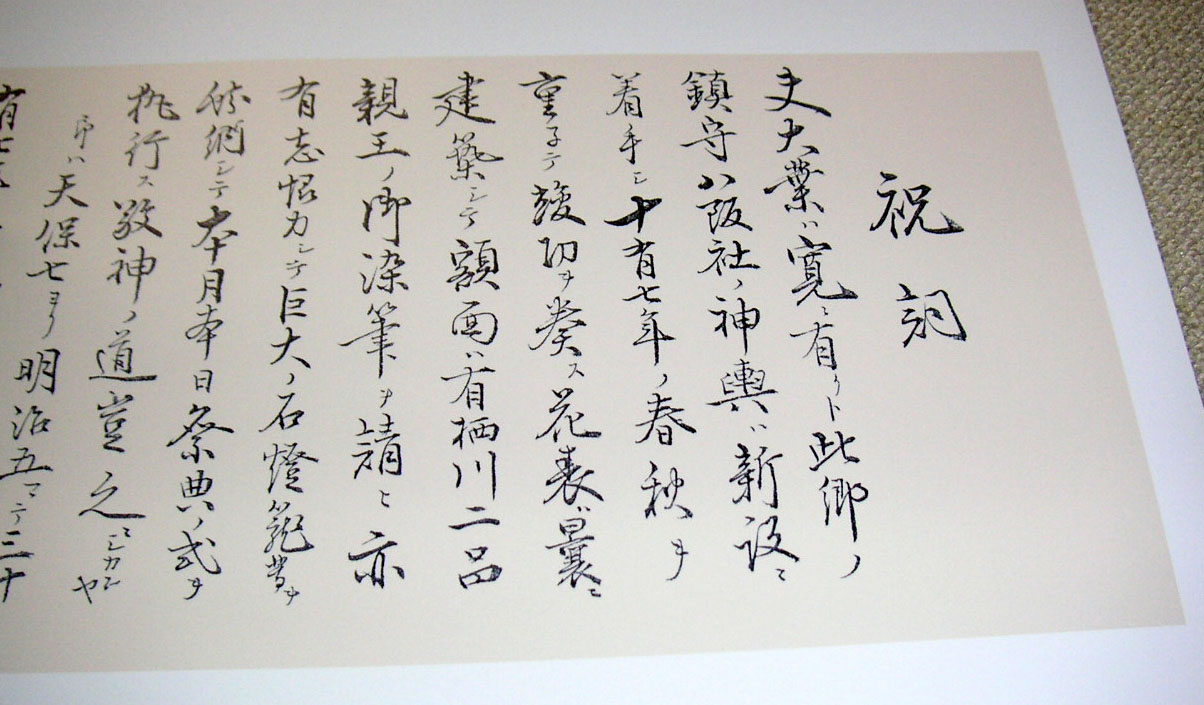 祝詞
夫大業ハ寛ニ有リト此郷ノ
鎮守八阪社ノ神輿ハ新設ニ
着手シ十有七年ノ春秋ヲ
重子テ竣功ヲ奏ス花表ハ曩ニ
建築シテ額面ハ有栖川二品
親王ノ御染筆ヲ請ヒ亦
有志協力シテ巨大ノ石燈籠ヲ
シテ本月本日祭典ノ式ヲ
執行ス敬神ノ道豈之ニシカンヤ
天保七ヨリ明治五マテ三十
有七